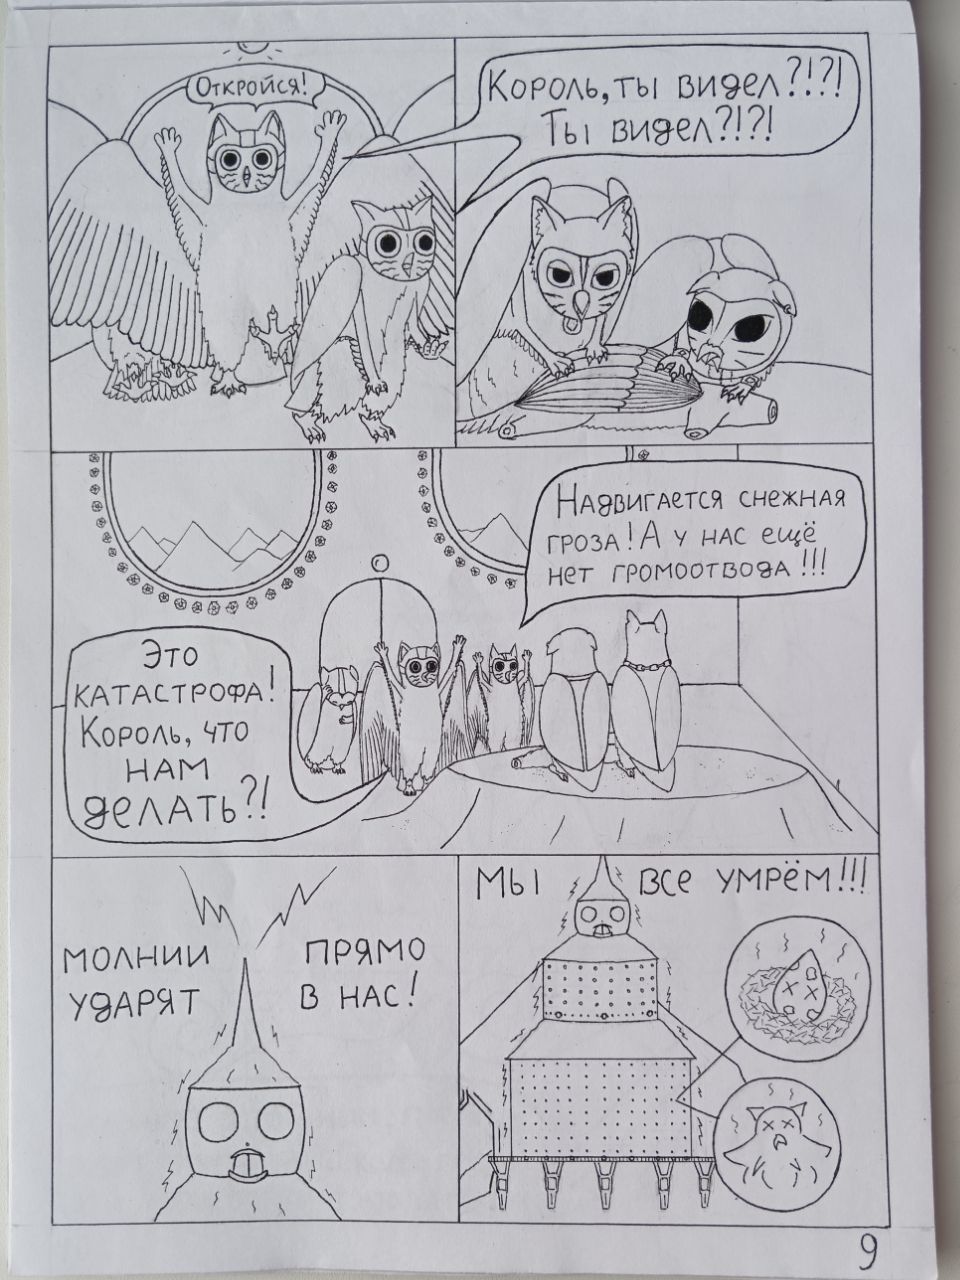 Откройся!
Король, ты видел?!?!
Ты видел?!?!
Надвигается снежная
гроза! А у нас ещё
нет громоотвода!!!
Это
катастрофа!
Король, что
нам
делать?!
Молнии
ударят
прямо
в нас!
Мы все умрём!!!
9